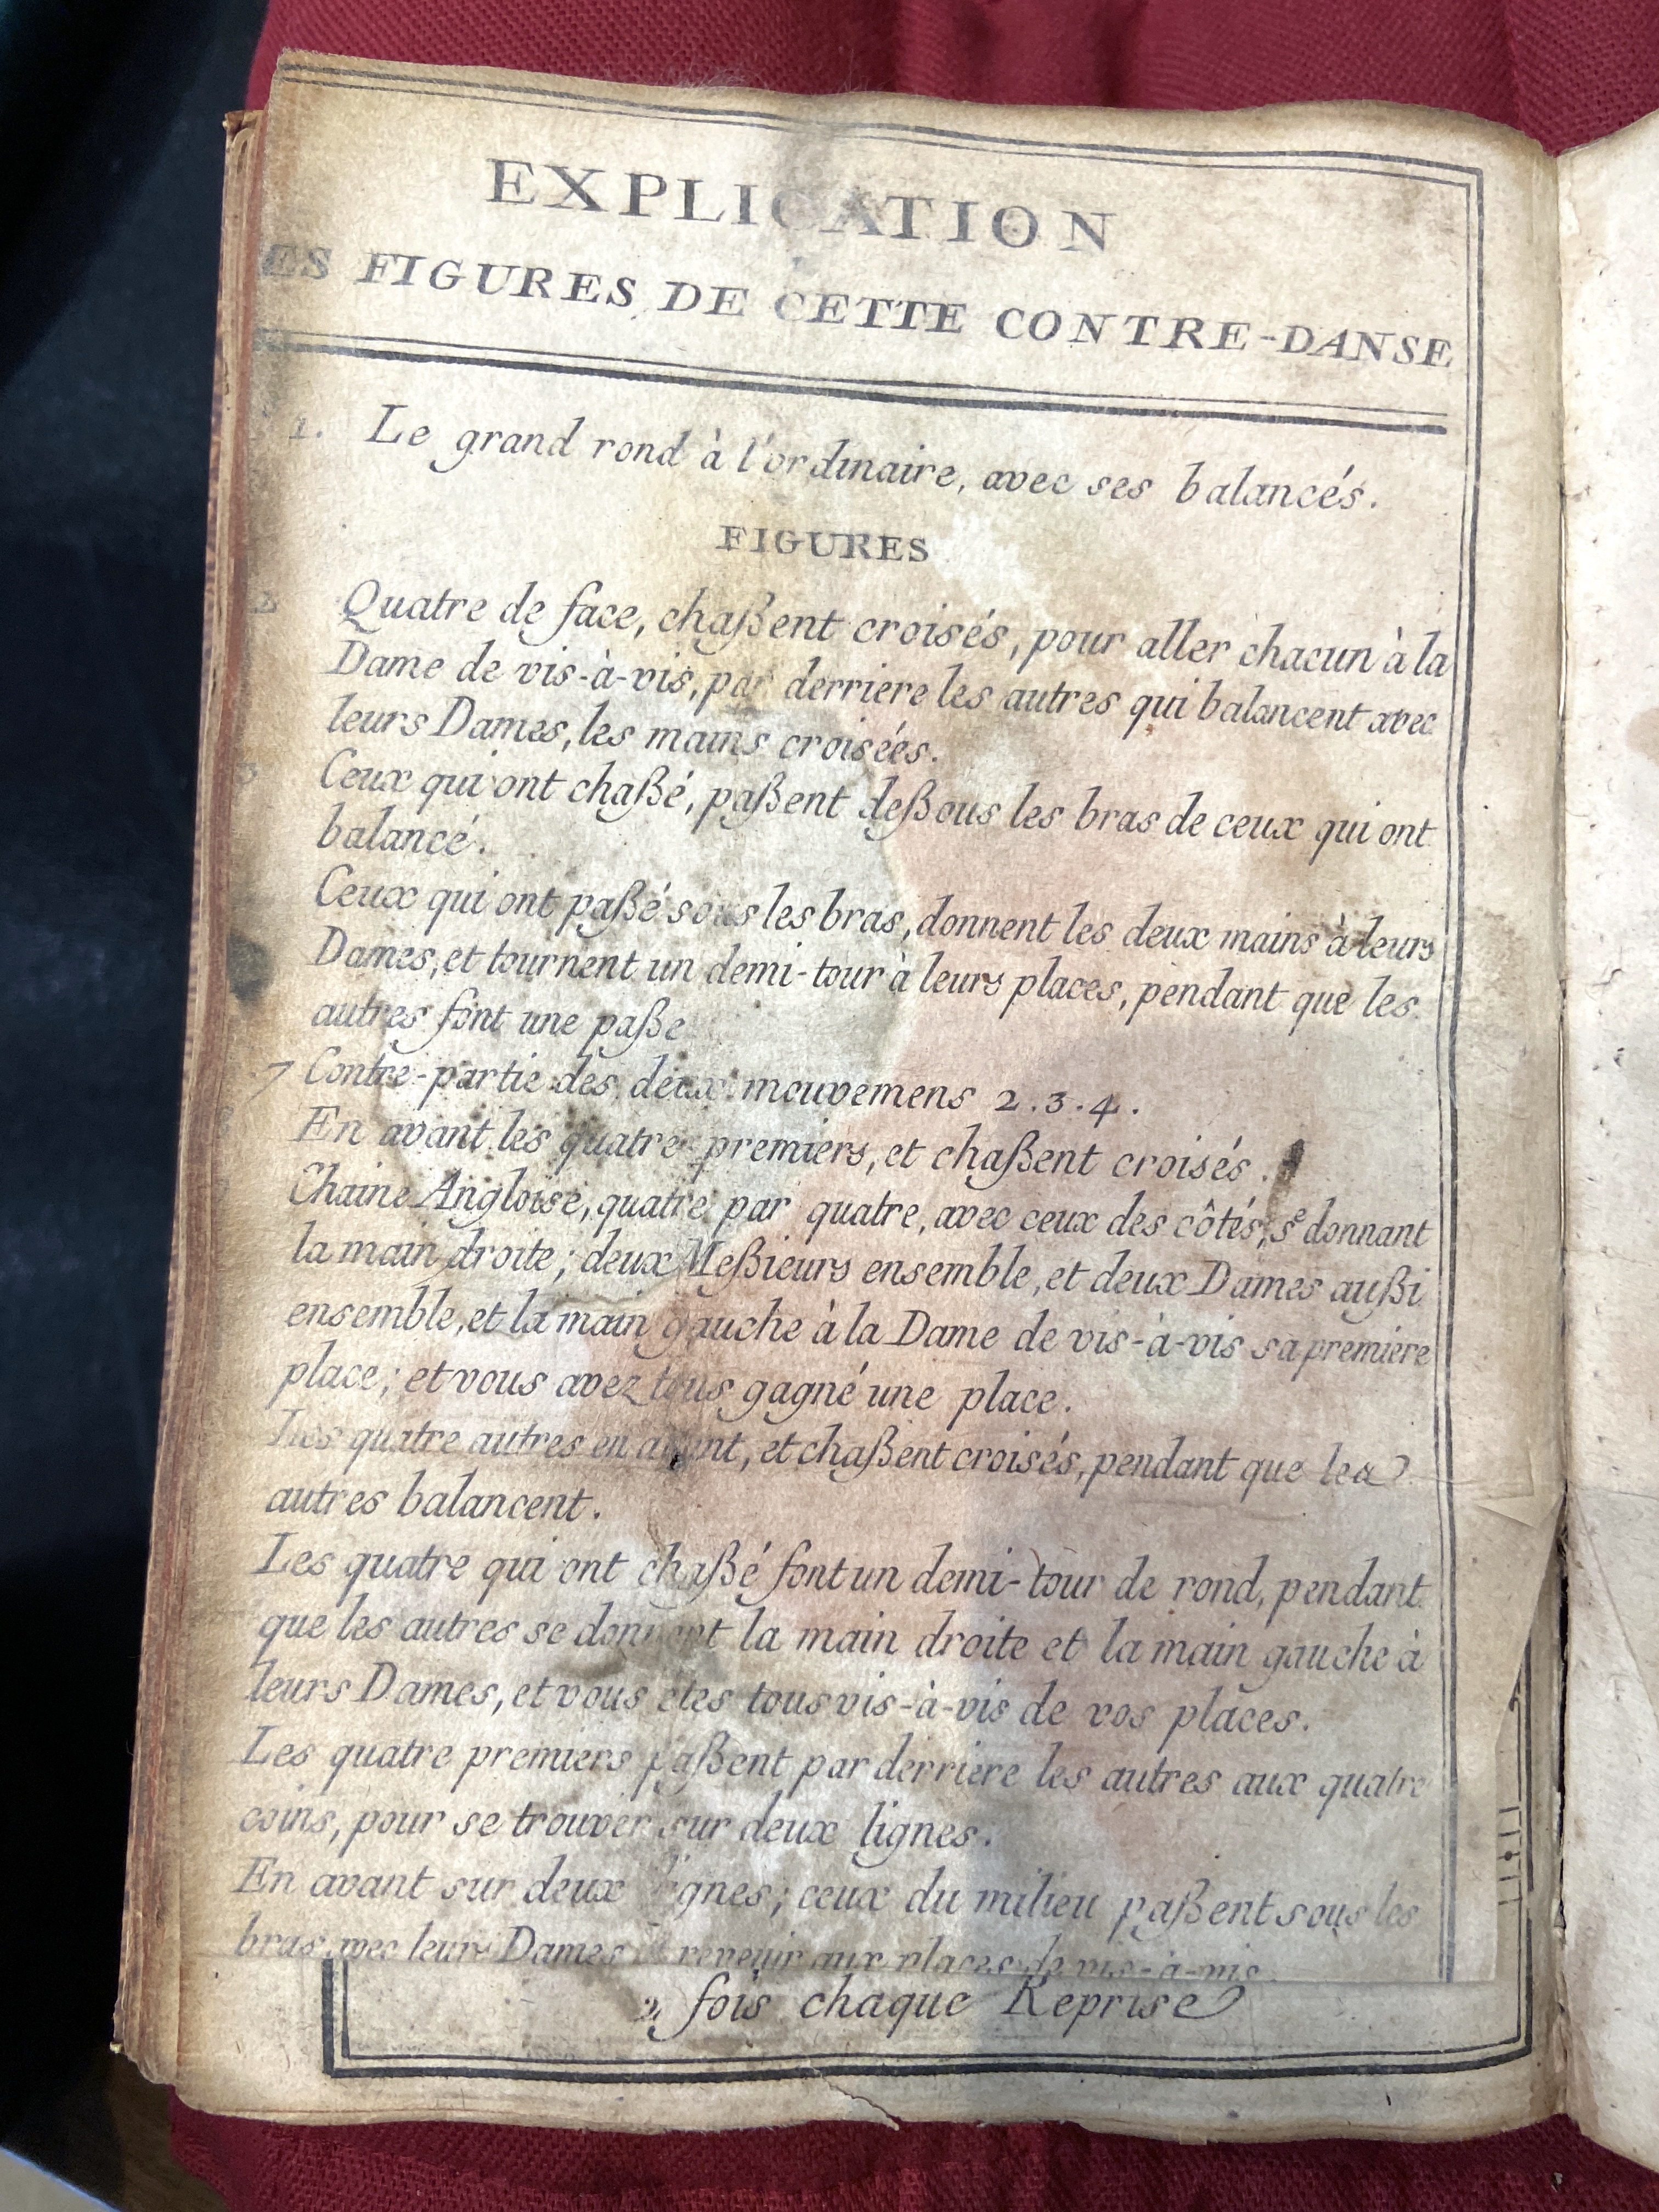 EXPLICATION
ES FIGURES DE CETTE CONTRE-DANSE
1. Le grand rond à l'ordinaire, avec ses balancés.
FIGURES
2 Quatre de face, chaßent croisés, pour aller chacun à la
Dame de vis-à-vis, par derriere les autres qui balancent avec
leurs Dames, les mains croisées.
3 Ceux qui ont chaßé, paßent deßous les bras de ceux qui ont
balancé.
Ceux qui ont paßé sous les bras, donnent les deux mains à leurs
Dames, et tournent un demi-tour à leurs places, pendant que les
autres font une paße
7 Contre-partie des deux mouvemens 2.3.4.
En avant les quatre premiers, et chaßent croisés.
Chaine Angloise, quatre par quatre, avec ceux des côtés, se donnant
la main droite; deux Meßieurs ensemble, et deux Dames außi
ensemble, et la main gauche à la Dame de vis-à-vis sa premiere
place; et vous avez tous gagné une place.
Les quatre autres en avant, et chaßent croisés, pendant que les
autres balancent.
Les quatre qui ont chaßé font un demi-tour de rond, pendant
que les autres se donnent la main droite et la main gauche à
leurs Dames, et vous etes tous vis-à-vis de vos places.
Les quatre premiers paßent par derriere les autres aux quatre
coins, pour se trouver sur deux lignes.
En avant sur deux lignes; ceux du milieu paßent sous les
bras avec leurs Dames revenir aux places de vis-à-vis.
2 fois chaque Reprise